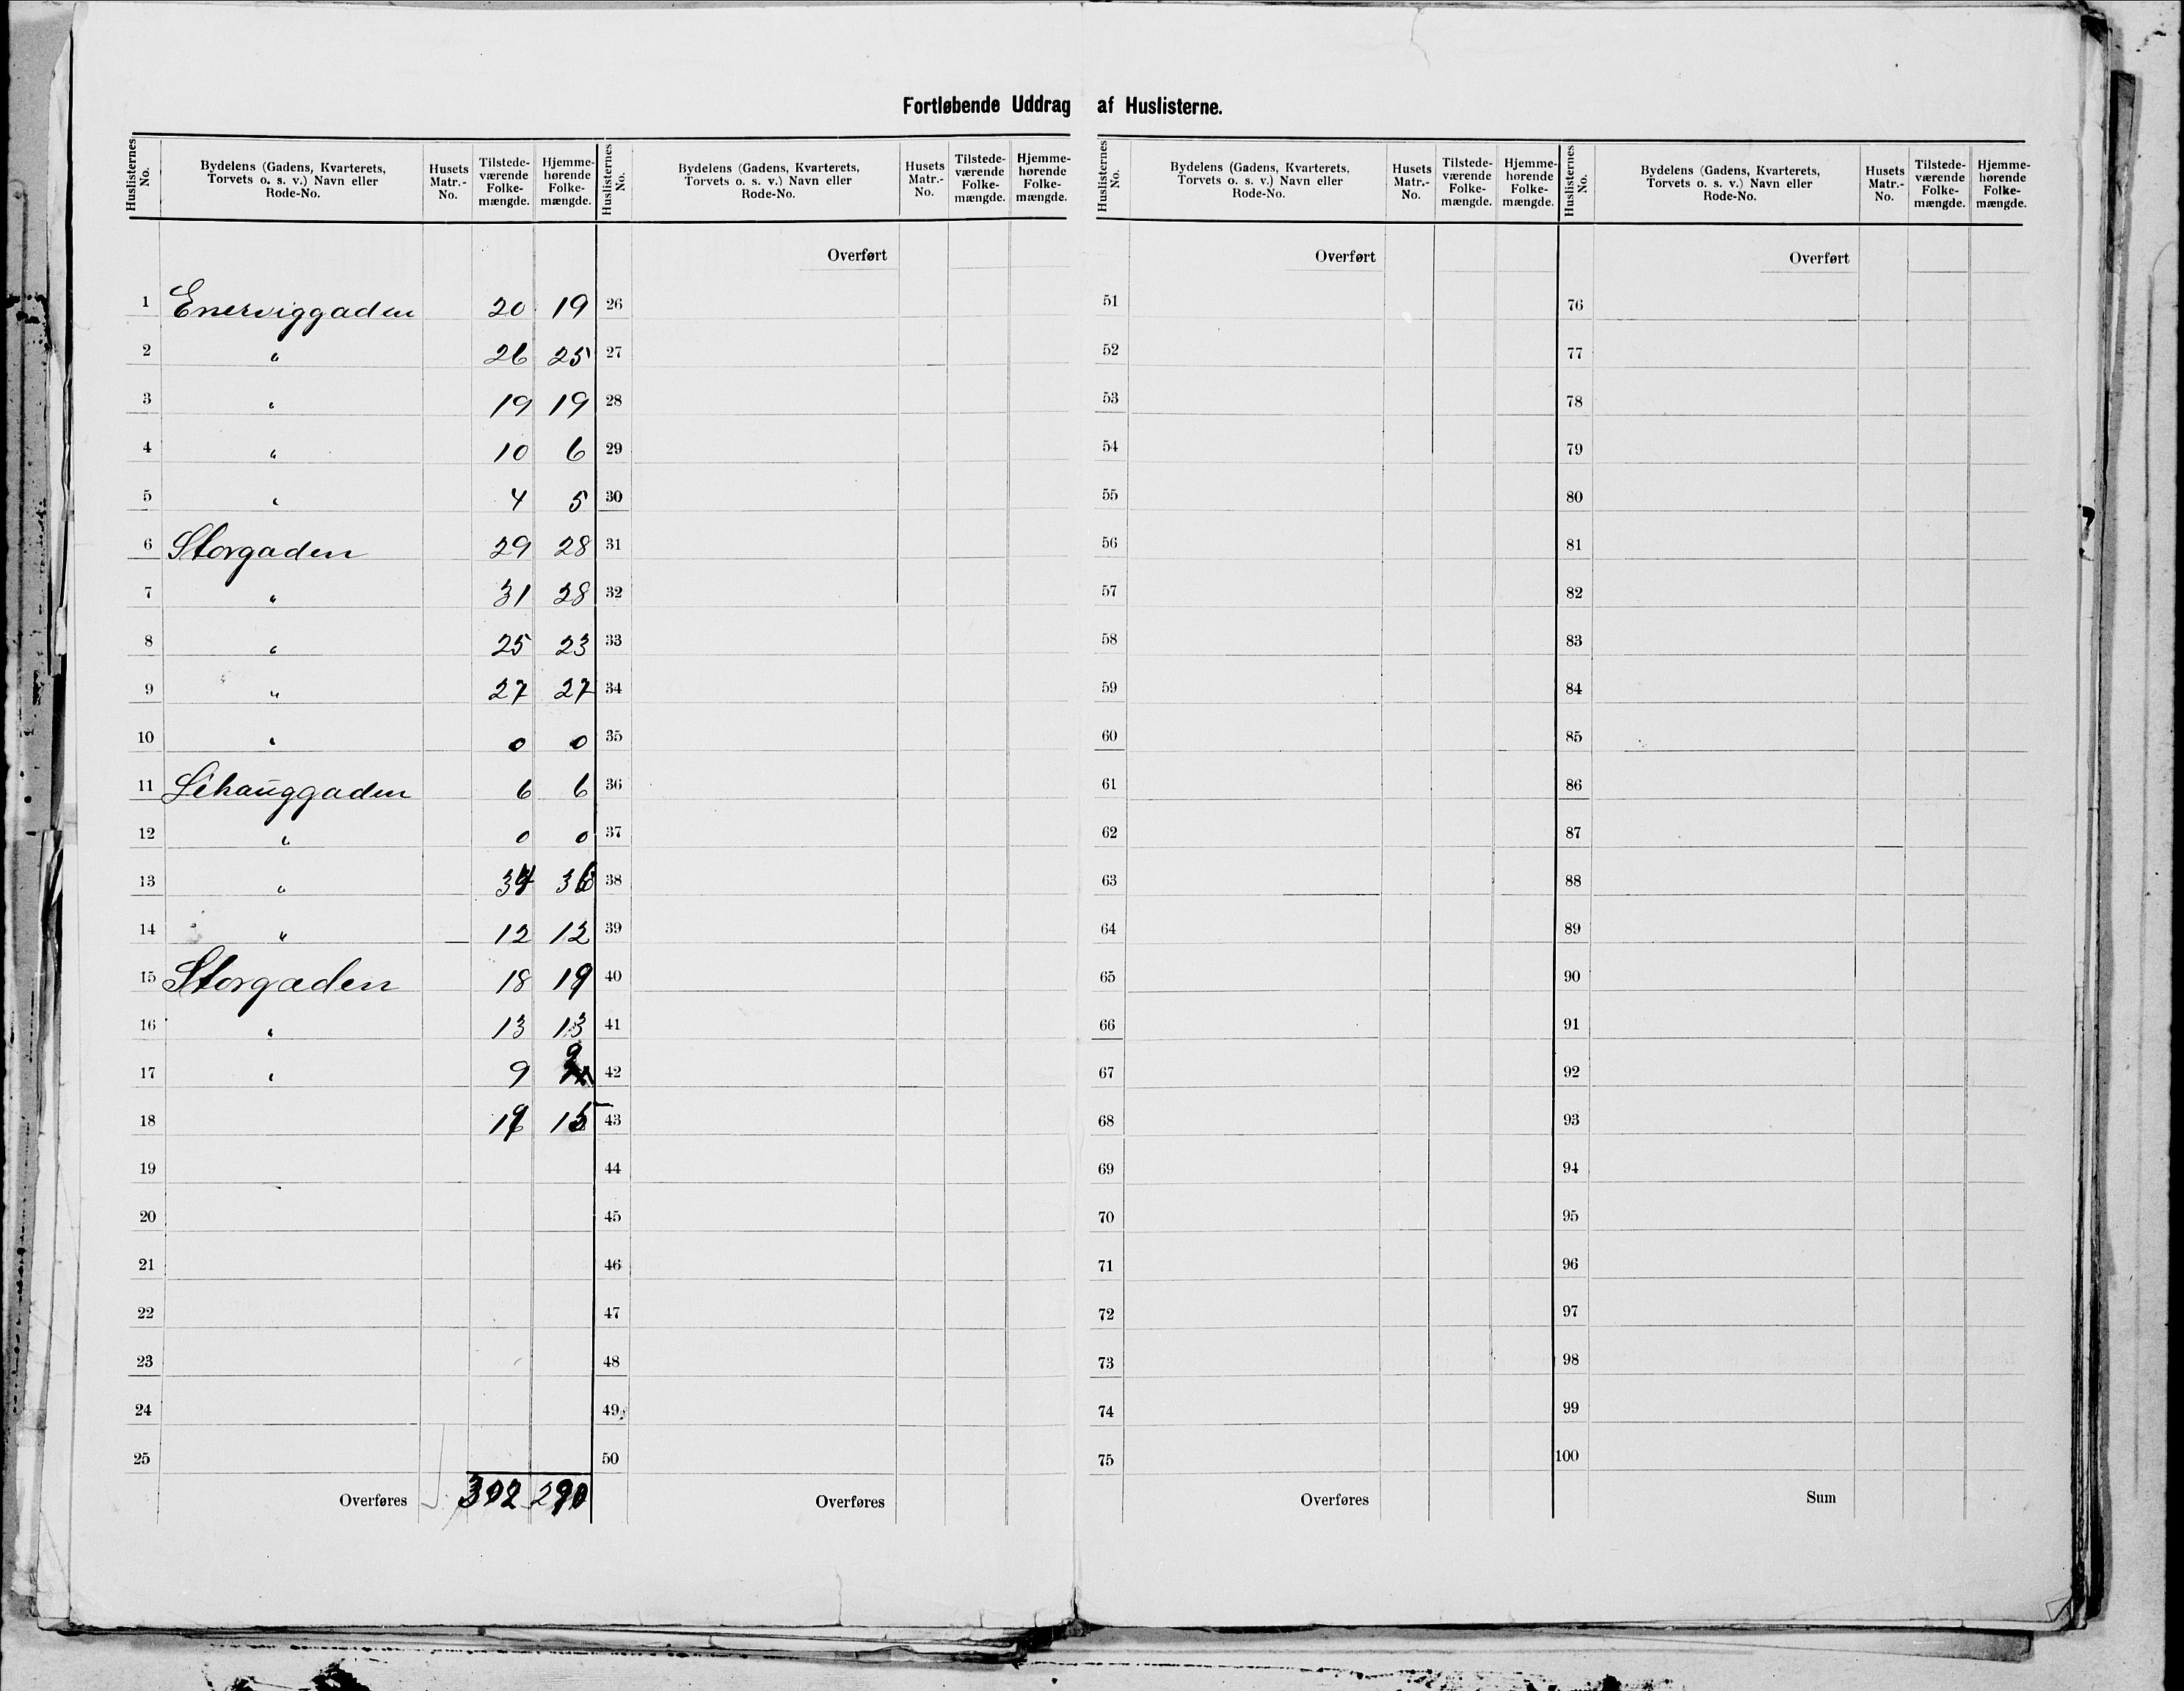 Fortløbende Uddrag af Huslisterne.
Huslisternes No. Bydelens (Gadens, Kvarterets, Torvets o. s. v.) Navn eller Rode-No. Husets Matr.-No. Tilstede-værende Folke-mængde. Hjemme-hørende Folke-mængde.
Huslisternes No. Bydelens (Gadens, Kvarterets, Torvets o. s. v.) Navn eller Rode-No. Husets Matr.-No. Tilstede-værende Folke-mængde. Hjemme-hørende Folke-mængde.
Huslisternes No. Bydelens (Gadens, Kvarterets, Torvets o. s. v.) Navn eller Rode-No. Husets Matr.-No. Tilstede-værende Folke-mængde. Hjemme-hørende Folke-mængde.
Huslisternes No. Bydelens (Gadens, Kvarterets, Torvets o. s. v.) Navn eller Rode-No. Husets Matr.-No. Tilstede-værende Folke-mængde. Hjemme-hørende Folke-mængde.
Overført Overført Overført
1 Enerviggaden 20 19 26 51 76
2 " 26 25 27 52 77
3 " 19 19 28 53 78
4 " 10 6 29 54 79
5 " 4 5 30 55 80
6 Storgaden 29 28 31 56 81
7 " 31 28 32 57 82
8 " 25 23 33 58 83
9 " 27 27 34 59 84
10 " 0 0 35 60 85
11 Lihauggaden 6 6 36 61 86
12 " 0 0 37 62 87
13 " 34 36 38 63 88
14 " 12 12 39 64 89
15 Storgaden 18 19 40 65 90
16 " 13 13 41 66 91
17 " 9 9 42 67 92
18 19 15 43 68 93
19 44 69 94
20 45 70 95
21 46 71 96
22 47 72 97
23 48 73 98
24 49 74 99
25 50 75 100
Overføres 302 290 Overføres Overføres Sum